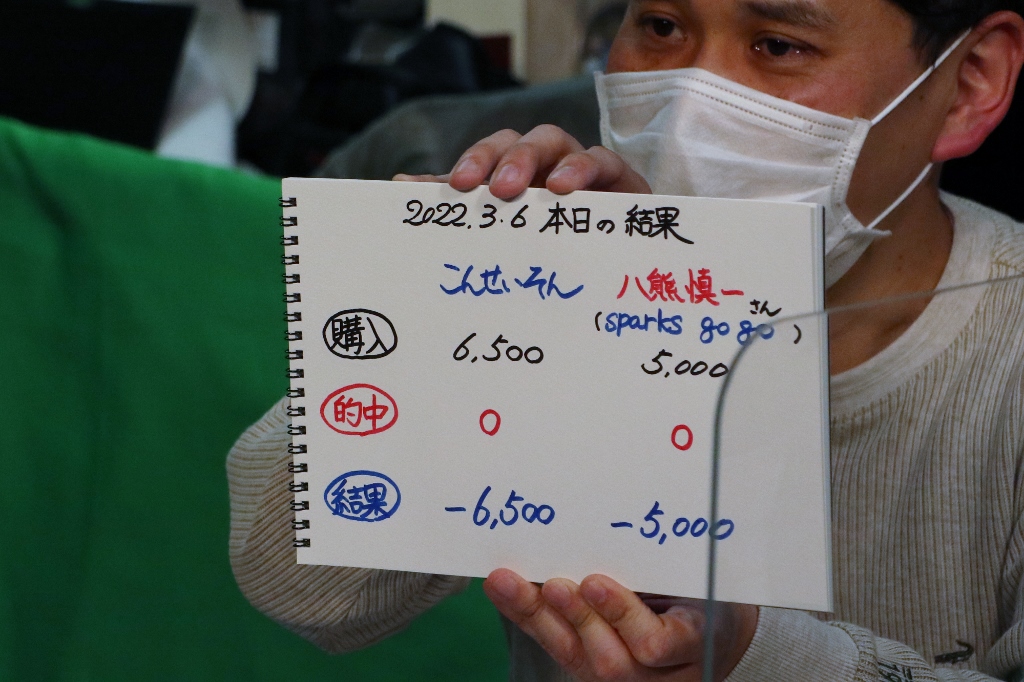 2022.3.6 本日の結果
こんせいそん 八熊慎一さん
(sparks go go)
購入 6,500 5,000
的中 0 0
結果 -6,500 -5,000